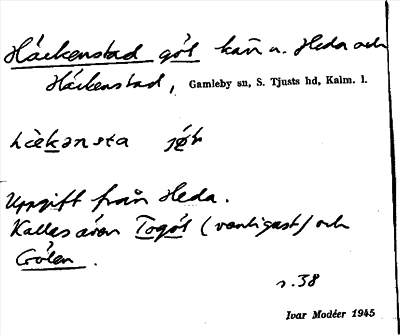 Häckenstad göl kärr n. Heda och
Häckenstad, Gamleby sn, S. Tjusts hd, Kalm. l.
hèkənsta jø̄l
Uppgift från Heda.
Kallas även Togöl (vanligast) och
Gölen.
s. 38
Ivar Modéer 1945